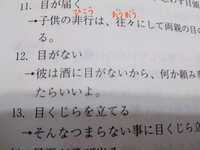 11. 目が届く
→子供の非行は、往々にして両親の目の
ひこう おうおう
る。
12. 目がない
→彼は酒に目がないから、何か頼み
たらいいよ。
13. 目くじらを立てる
→そんなつまらない事に目くじら立